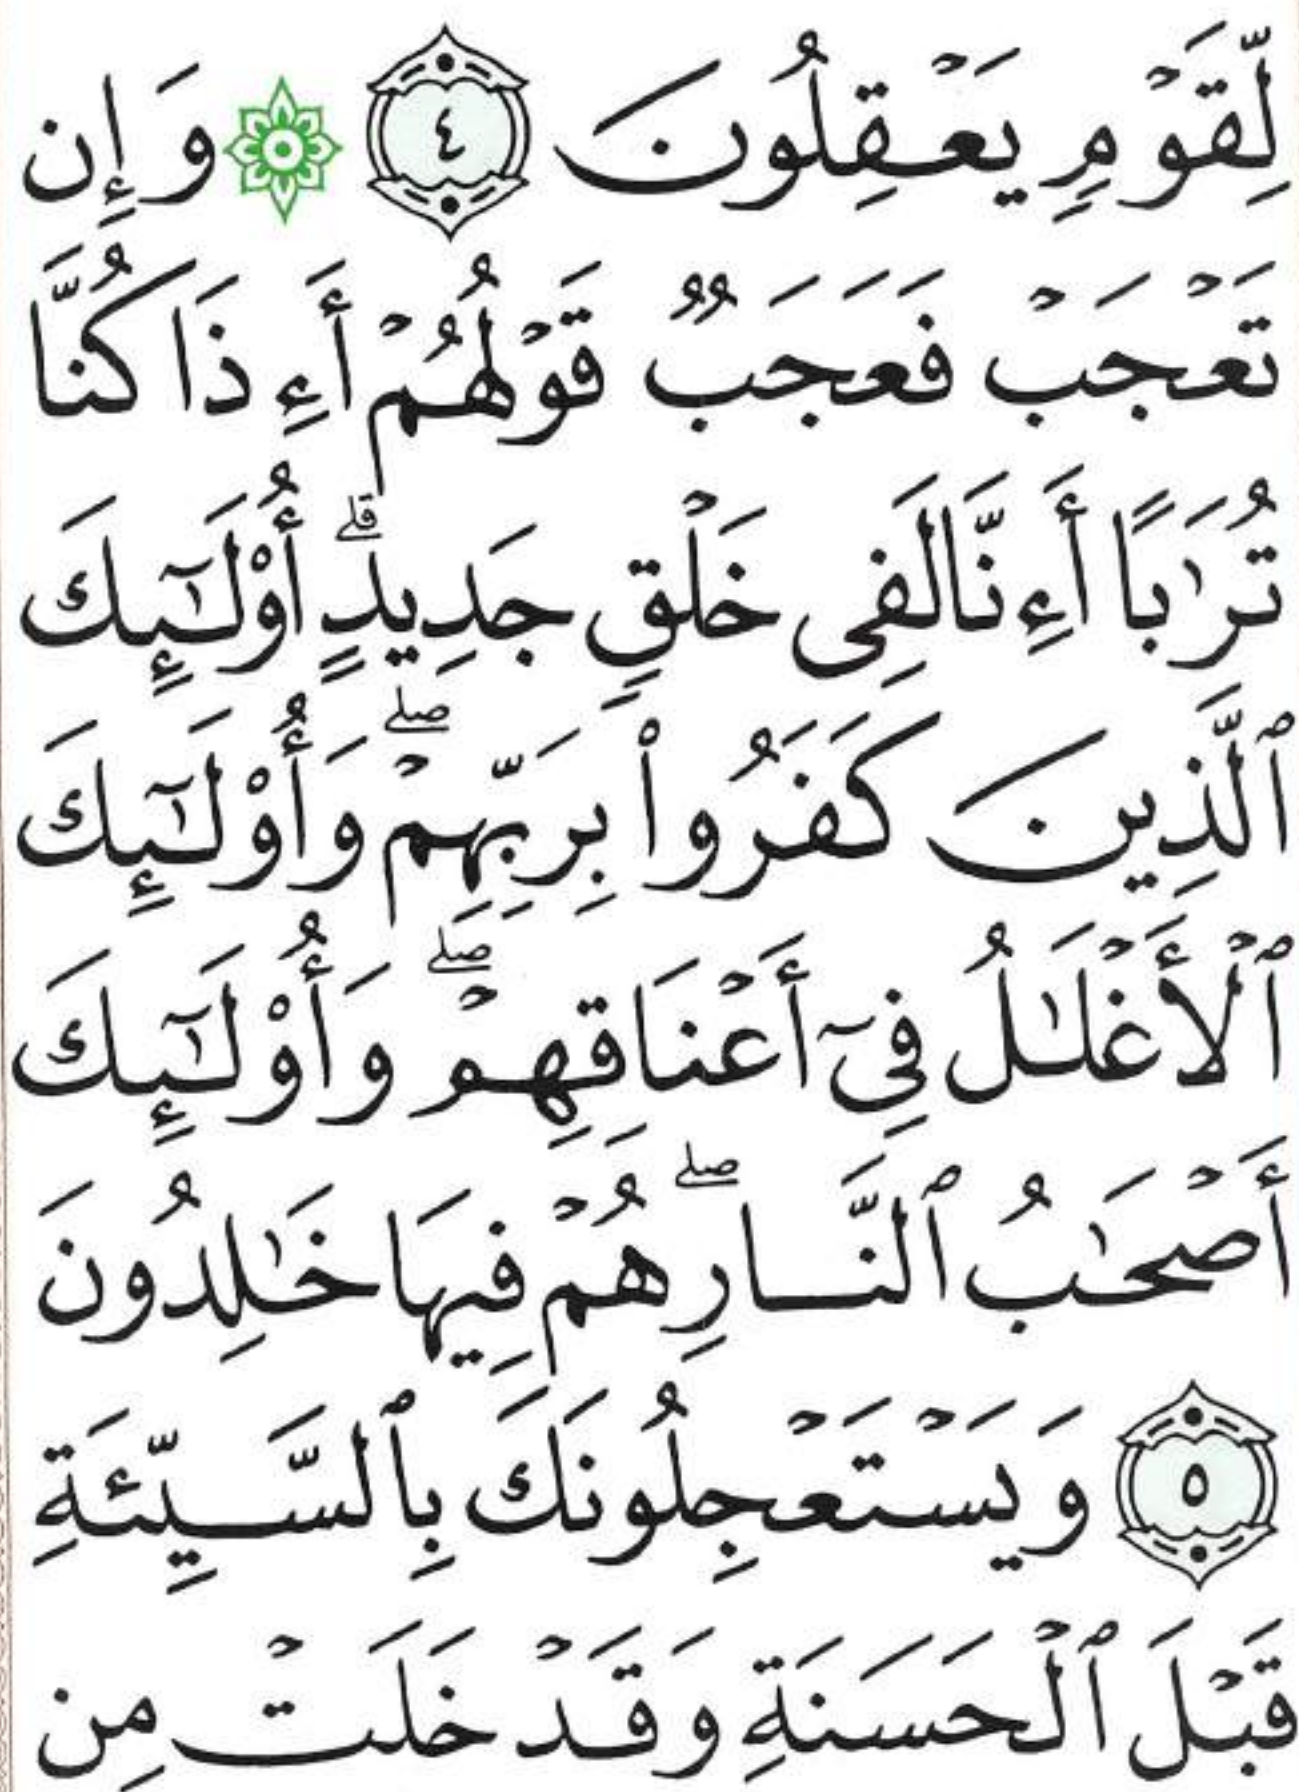 لِّقَوْمٍ يَعْقِلُونَ ٤ ۞ وَإِن
تَعْجَبْ فَعَجَبٌ قَوْلُهُمْ أَءِذَا كُنَّا
تُرَٰبًا أَءِنَّا لَفِى خَلْقٍ جَدِيدٍ ۗ أُوْلَـٰٓئِكَ
ٱلَّذِينَ كَفَرُوا۟ بِرَبِّهِمْ ۖ وَأُوْلَـٰٓئِكَ
ٱلْأَغْلَـٰلُ فِىٓ أَعْنَاقِهِمْ ۖ وَأُوْلَـٰٓئِكَ
أَصْحَـٰبُ ٱلنَّارِ ۖ هُمْ فِيهَا خَـٰلِدُونَ
٥ وَيَسْتَعْجِلُونَكَ بِٱلسَّيِّئَةِ
قَبْلَ ٱلْحَسَنَةِ وَقَدْ خَلَتْ مِن